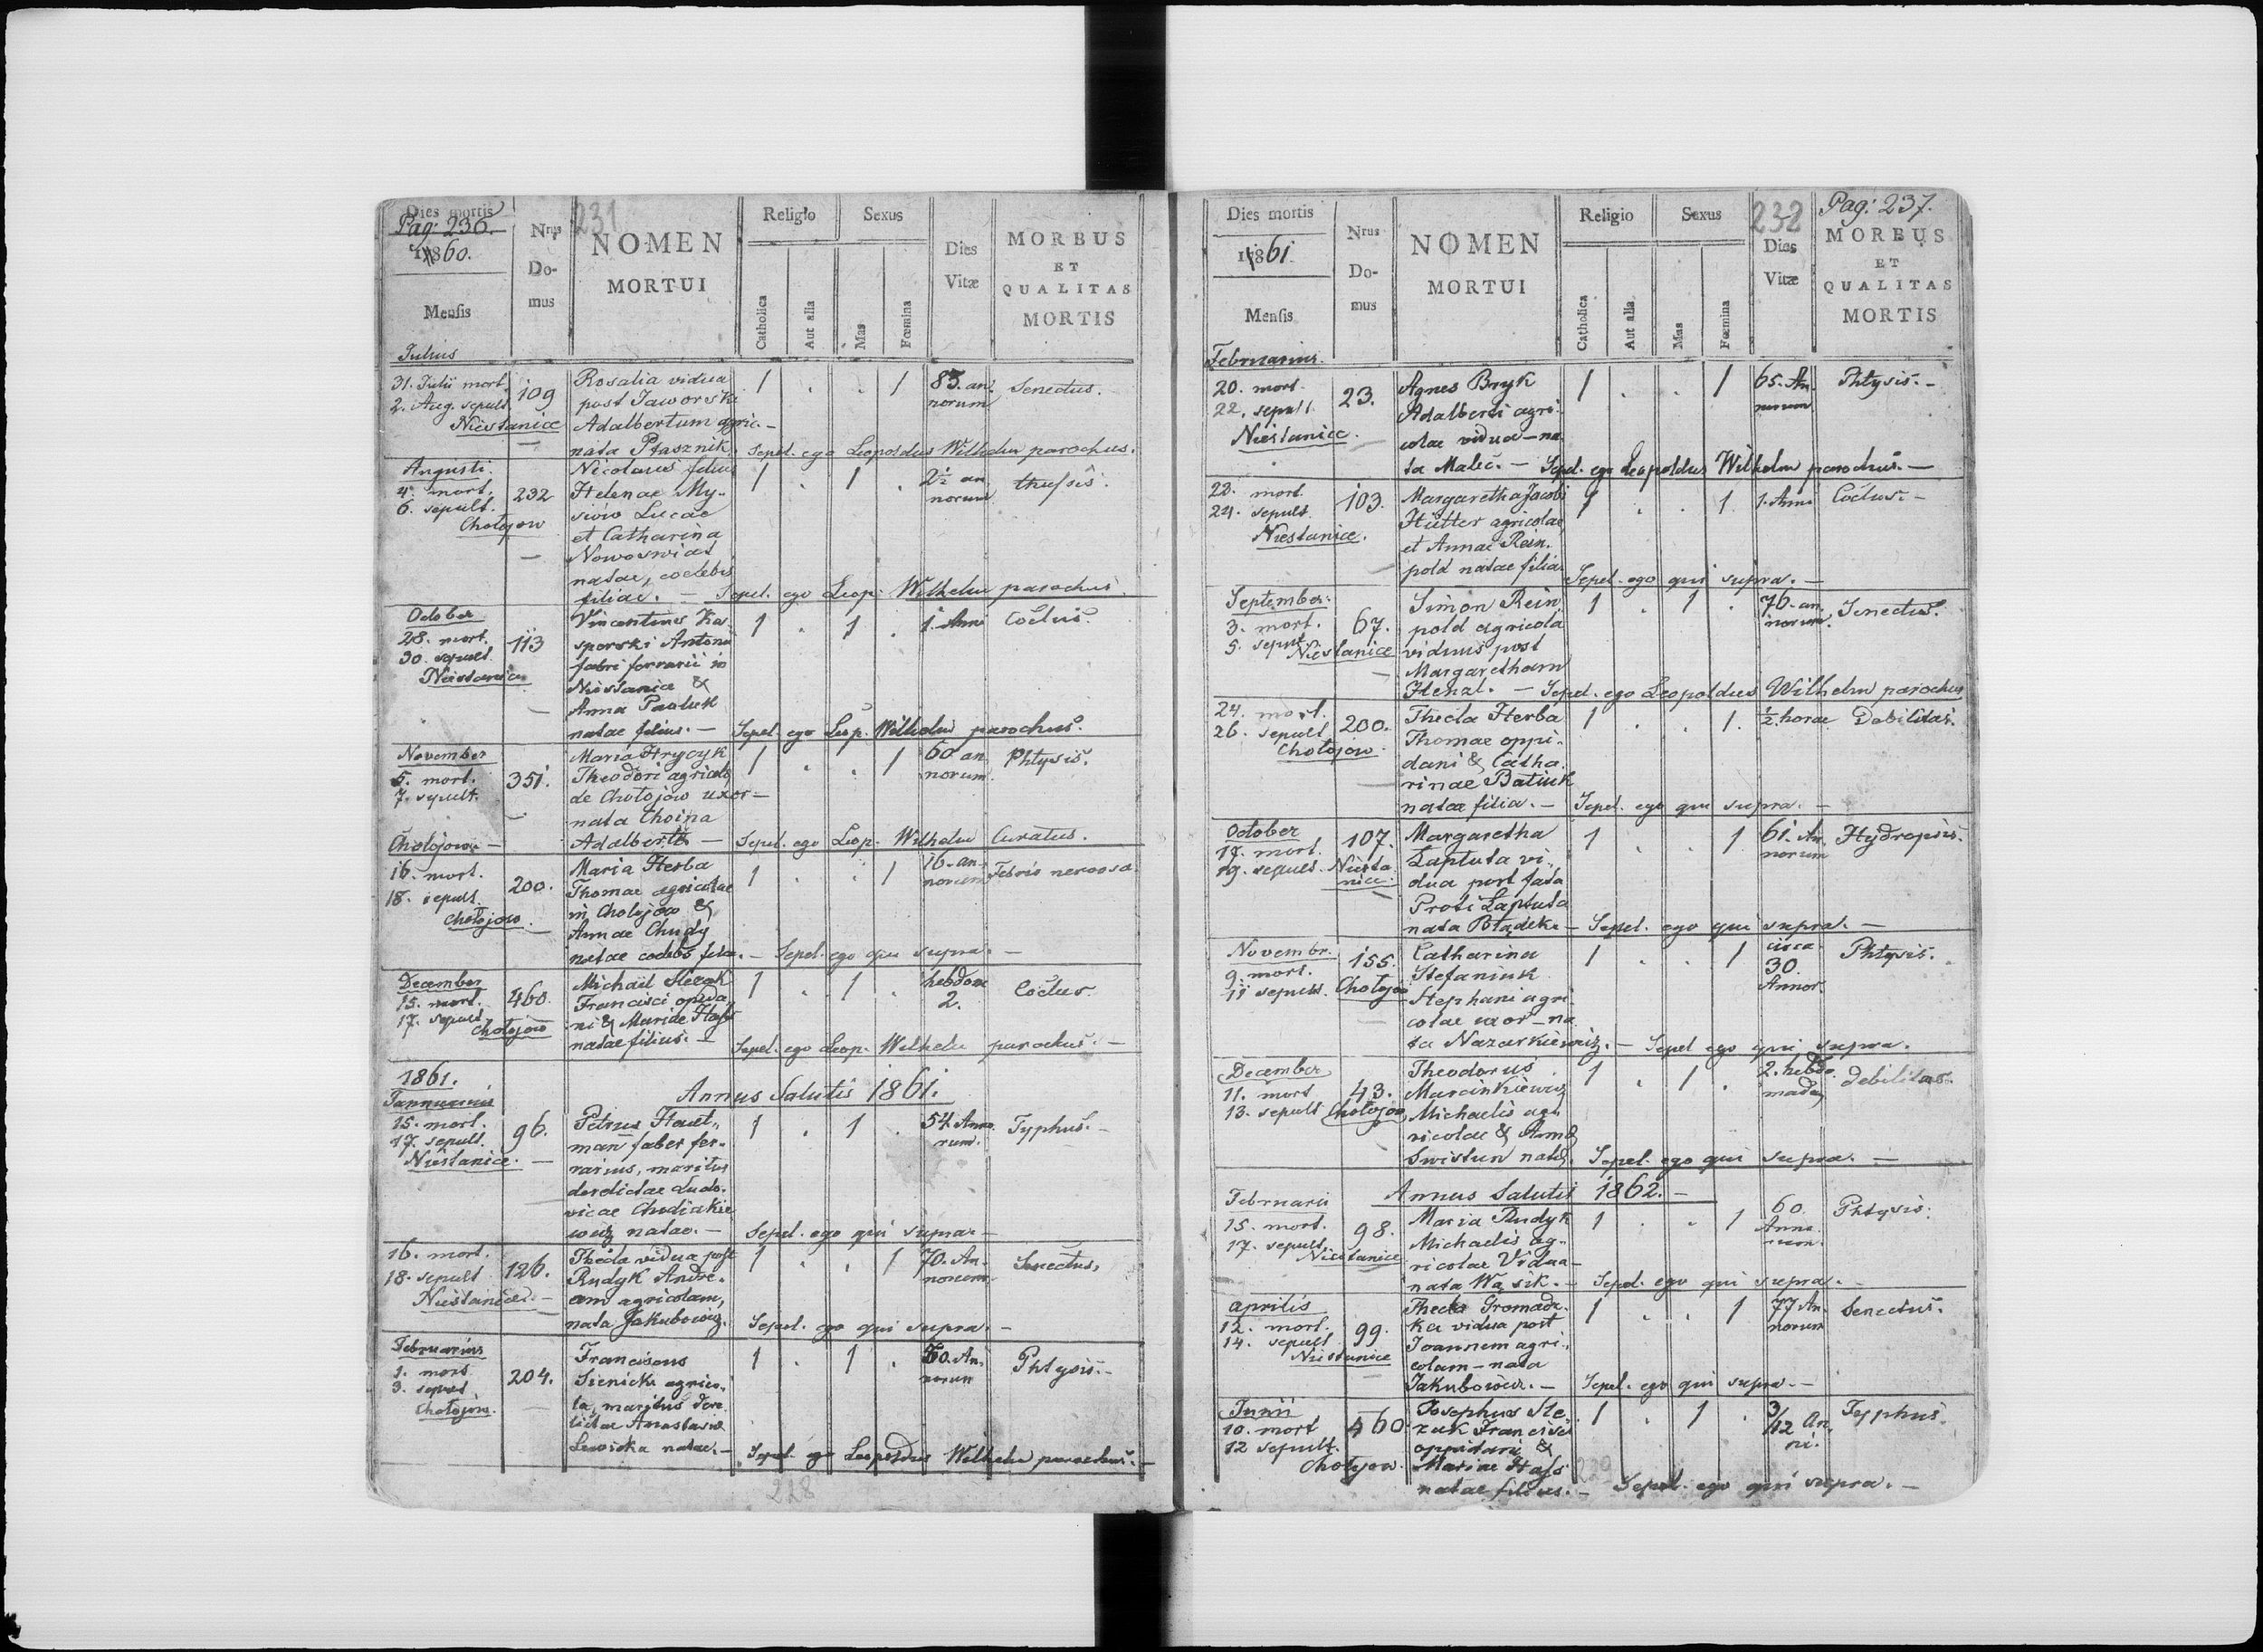 Dies mortis
Pag: 236.
1860.
Mensis
Julius
Nrus
Do-
mus
231
NOMEN
MORTUI
Religio
Catholica
Aut alia
Sexus
Mas
Fœmina
Dies
Vitæ
MORBUS
ET
QUALITAS
MORTIS
31. Julii mort. 109 Rosalia vidua 1 . . 1 83. an- Senectus.
2. Aug. sepult. post Jaworski norum
Niestanice Adalbertum agric.-
nata Ptasznik. Sepel. ego Leopoldus Wilhelm parochus.
Augusti. Nicolaus filius 1 . 1 . 2½ an thussis.
4. mort. 232 Helenae My- norum
6. sepult. siów Lucae
Chołojow et Catharina
Nowoswiat
natae, coelebis
filiae. - Sepel. ego Leop. Wilhelm parochus.
October Vincentius Ka- 1 . 1 . 1. Anni Coctus.
28. mort. 113 sporski Antonii
30. sepult. fabri ferrarii in
Niestanice Niestanice &
Anna Pauluk
natae filius. - Sepel. ego Leop. Wilhelm parochus.
November Maria Hrycyk 1 . . 1 60 an Phtysis.
5. mort. 351. Theodori agricolae norum
7. sepult. de Chołojow uxor -
nata Choina
Chołojow - Adalberti - Sepel. ego Leop. Wilhelm Curatus.
16. mort. 200. Maria Herba 1 . . 1 16. an- Febris nervosa.
18. sepult. Thomae agricolae norum
Chołojow. in Chołojow &
Annae Chudy
natae coelebs filia. - Sepel. ego qui supra. -
December Michail Slezak 1 . 1 . hebdom Coctus.
15. mort. 460. Francisci oppida- 2.
17. sepult. ni & Mariae Hass
Chołojow natae filius. - Sepel. ego Leop. Wilhelm parochus. -
1861. Annus Salutis 1861.
Januarius
15. mort. 96. Petrus Haut- 1 . 1 . 54. Anno- Typhus. -
17. sepult. man faber fer- rum.
Niestanice. - rarius, maritus
derelictae Ludo-
vicae Chodiakie
wicz natae. - Sepel. ego qui supra -
16. mort. 126. Thecla vidua post 1 . . 1 70. An- Senectus,
18. sepult Rudyk Andre- norum.
Niestanice. - am agricolam,
nata Jakubowicz. Sepel. ego qui supra. -
Februarius Franciscus 1 . 1 . 60. An- Phtysis. -
1. mort 204. Sienicki agrico- norum
3. sepult la, maritus dere
Chołojow. lictae Anastasiae
Lewicka natae. - Sepel. ego Leopoldus Wilhelm parochus. -
228
Dies mortis
1861.
Mensis
Februarius.
Nrus
Do-
mus
NOMEN
MORTUI
Religio
Catholica
Aut alia
Sexus
Mas
Fœmina
232
Dies
Vitæ
Pag: 237.
MORBUS
ET
QUALITAS
MORTIS
20. mort. 23. Agnes Bryk 1 . . 1 65. An- Phtysis. -
22. sepult. Adalberti agri- norum
Niestanice. colae vidua - na
ta Malec. - Sepel. ego Leopoldus Wilhelm parochus. -
23. mort. 103. Margaretha Jacobi 1 . . 1. 1. Anni Coctus. -
24. sepult. Hütter agricolae
Niestanice. et Annae Rein-
pold natae filia. Sepel. ego qui supra. -
September. Simon Rein 1 . 1 . 76. an- Senectus.
3. mort. 67. pold agricola norum.
5. sepult viduus post
Niestanice Margaretham
Henzl. - Sepel. ego Leopoldus Wilhelm parochus
24. mort. 200. Thecla Herba 1 . . 1. ½ horae Debilitas.
26. sepult Thomae oppi-
Chołojow. dani & Catha-
rinae Batiuk
natae filia. - Sepel. ego qui supra. -
October 107. Margaretha 1 . . 1 61. An- Hydropsis.
17. mort. Łaptuta vi- norum
19. sepult. Niesta dua post fata
nice. Proti Łaptuta
nata Błądek. - Sepel. ego qui supra. -
Novembr. 155. Catharina 1 . . 1 circa Phtysis.
9. mort. Stefaniuk 30.
11 sepult. Chołojow Stephani agri- Annor.
colae uxor - na
ta Nazarkiewicz. - Sepel ego qui supra.
December Theodorus 1 . 1 . 2. hebdo debilitas.
11. mort 43. Marcinkiewicz mada
13. sepult Chołojow Michaelis ag-
ricolae & Anna
Swistun natae. Sepel. ego qui supra. -
Annus Salutis 1862. -
Februarii Maria Rudyk 1 . . 1 60. Phtysis.
15. mort. 98. Michaelis ag- Anno-
17. sepult ricolae Vidua - rum.
Niestanice nata Wąsik. - Sepel. ego qui supra. -
aprilis Thecla Gromadz- 1 . . 1 77 An- Senectus.
12. mort. 99. ka vidua post norum
14. sepult Joannem agri-
Niestanice colam - nata
Jakubowicz. - Sepel. ego qui supra. -
Junii Josephus Sle- 1 . 1 . 3/12 An- Typhus.
10. mort 460. zuk Francisci ni.
12 sepult. oppidani &
Chołojow. Mariae Hass 229
natae filius. - Sepel. ego qui supra. -